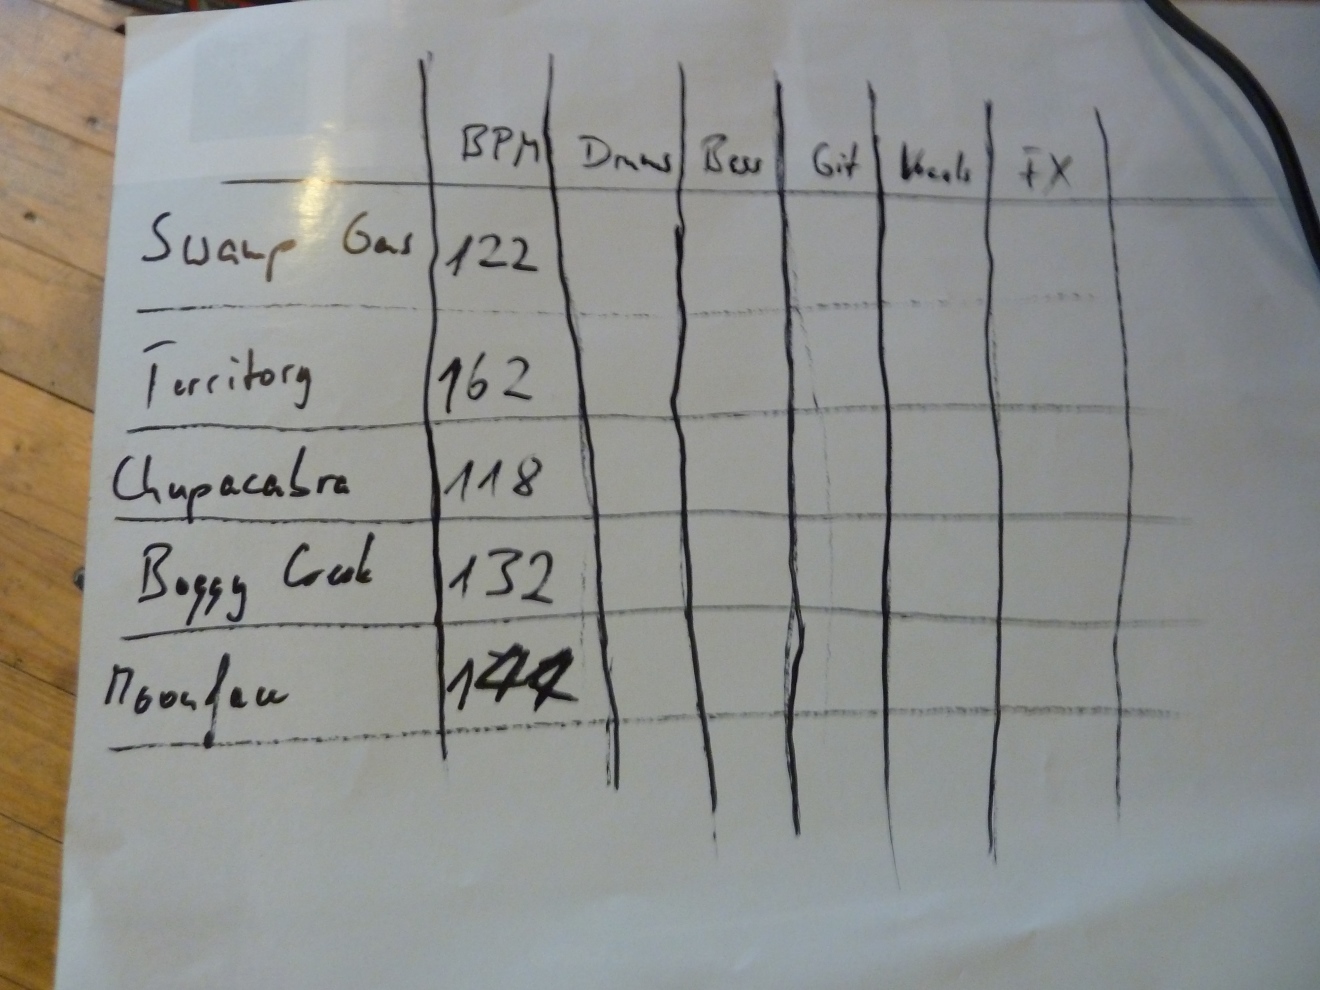 BPM Drums Bass Git Vocals FX
Swamp Gas 122
Territory 162
Chupacabra 118
Boggy Creek 132
144